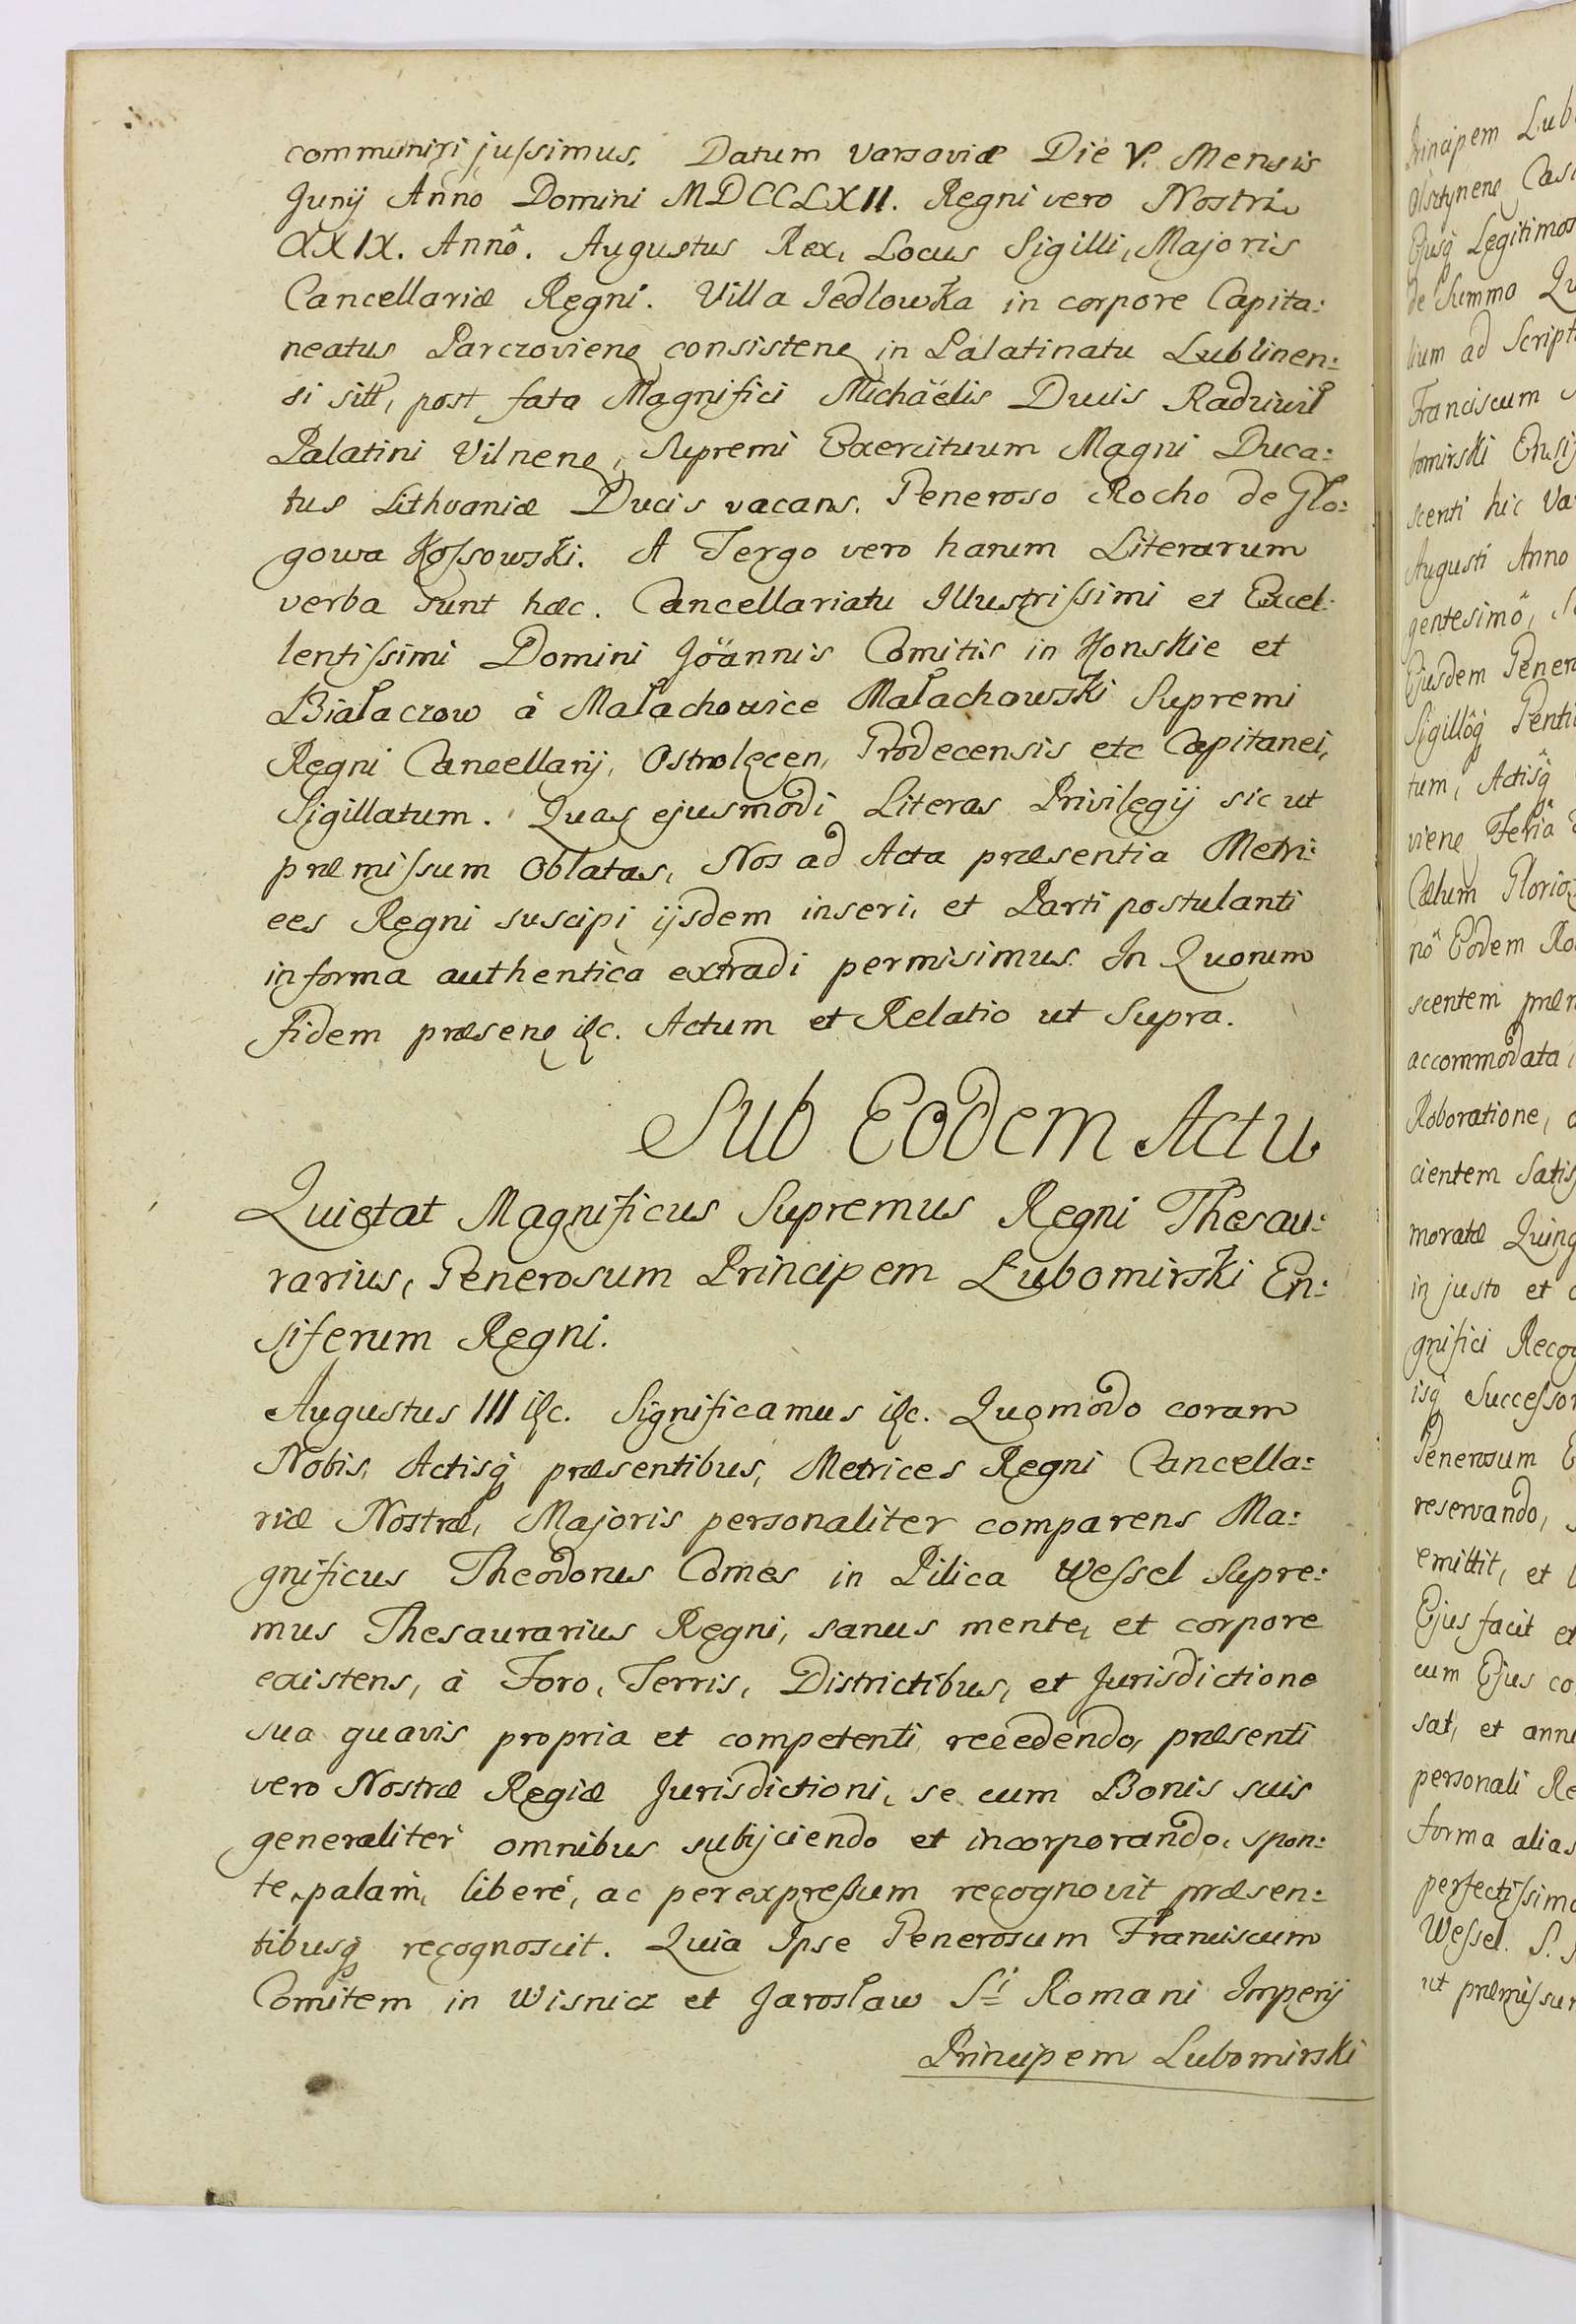 communiri jussimus. Datum Varsaviæ Die V. Mensis
Junij Anno Domini MDCCLXII. Regni vero Nostri
XXIX. Annô. Augustus Rex, Locus Sigilli, Majoris
Cancellariæ Regni. Villa Jedlowka in corpore Capita:
neatus Parczoviens consistens in Palatinatu Lublinen:
si sitt, post fata Magnifici Michäelis Ducis Radziwił
Palatini Vilnens, Supremi Exercituum Magni Duca:
tus Lithvaniæ Ducis vacans. Generoso Rocho de Glo:
gowa Kossowski. A Tergo vero harum Literarum
verba sunt hæc. Cancellariatu Illustrissimi et Excel:
lentissimi Domini Joännis Comitis in Konskie et
Białaczow à Małachowice Małachowski Supremi
Regni Cancellarij, Ostrolęcen, Grodecensis etc Capitanei,
Sigillatum. Quas ejusmodi Literas Privilegij sic ut
præmissum Oblatas, Nos ad Acta præsentia Metri:
ces Regni suscipi ijsdem inseri, et Parti postulanti
in forma authentica extradi permisimus. In Quorum
fidem præsens &c. Actum et Relatio ut Supra.
Sub Eodem Actu
Quietat Magnificus Supremus Regni Thesau:
rarius, Generosum Principem Lubomirski En:
siferum Regni.
Augustus III &c. Significamus &c. Quomodo coram
Nobis, Actisq̃ præsentibus, Metrices Regni Cancella:
riæ Nostræ, Majoris personaliter comparens Ma:
gnificus Theodorus Comes in Pilica Wessel Supre:
mus Thesaurarius Regni, sanus mente, et corpore
existens, à Foro, Terris, Districtibus, et Jurisdictione
sua quavis propria et competenti recedendo, præsenti
vero Nostræ Regiæ Jurisdictioni, se cum Bonis suis
generaliter omnibus subijciendo et incorporando, spon:
te, palam, liberé, ac per expressum recognovit præsen:
tibusq̃ recognoscit. Quia Ipse Generosum Franciscum
Comitem in Wisnicz et Jarosław S:i Romani Imperij
Principem Lubomirski
Principem Lub
Olsztynens Cas
Ejusq̃ Legitimos
de Summa Qu
lium ad Script
Franciscum
bomirski Ensi
scenti hic Va
Augusti Anno
gentesimô,
Ejusdem Gener
Sigillôq̃ Genti
tum, Actisq̃
viens Feria
Cælum Glorio
nô Eodem Ro
scentem præ
accommodata
Roboratione,
cientem Satis
moratæ Quing
in justo et
gnifici Recog
isq̃ Successor
Generosum E
reservando,
emittit, et
Ejus facit et
cum Ejus co
sat, et ann
personali Re
forma alias
perfectissim
Wessel. S.
ut præmissu